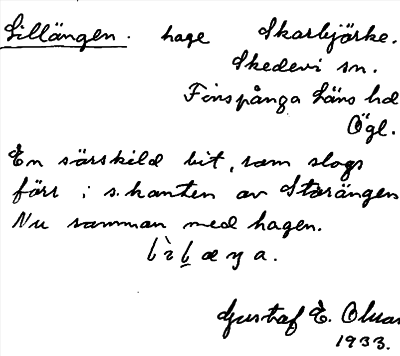 Lillängen. hage Skarbjörke.
Skedevi sn.
Finspånga läns hd
Ögl.
En särskild bit, som slogs
förr i s.kanten av Storängen
Nu samman med hagen.
Gustaf E.
1933.